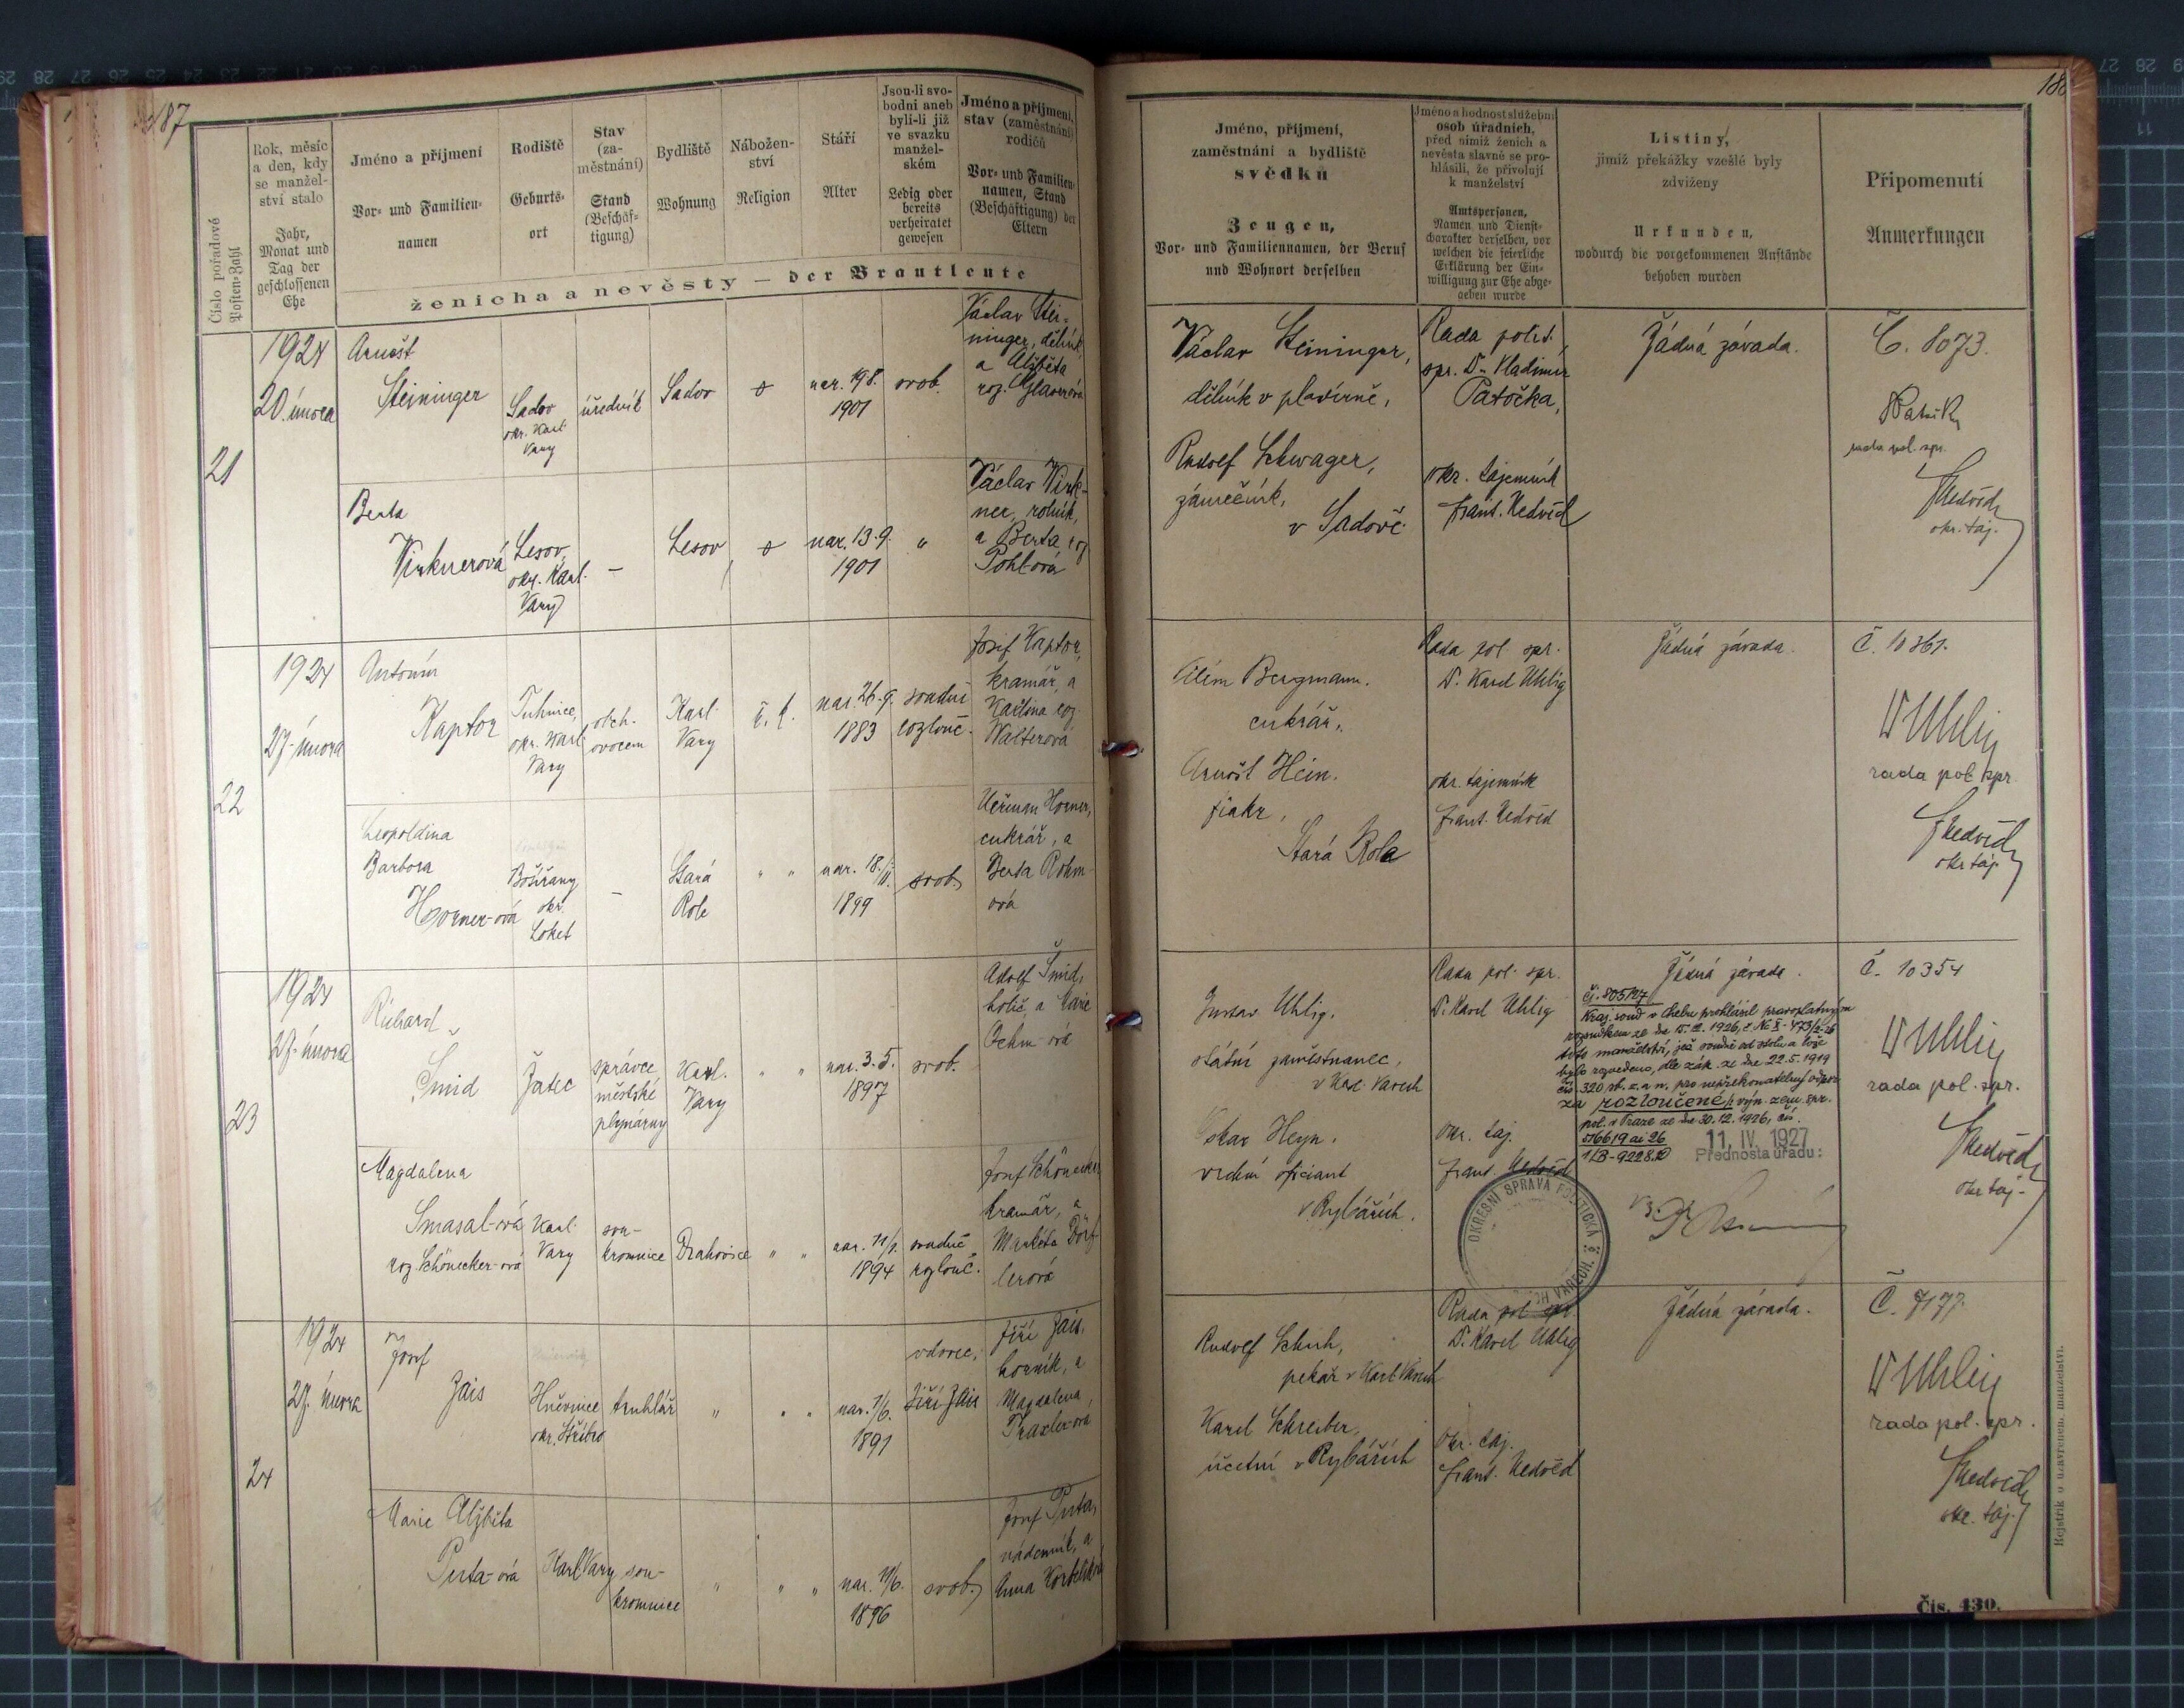 187
Číslo pořadové
Posten-Zahl
Rok, měsíc
a den, kdy
se manžel-
ství stalo
Jahr,
Monat und
Tag der
geschlossenen
Ehe
Jméno a příjmení
Vor- und Familien-
namen
Rodiště
Geburts-
ort
Stav
(za-
městnání)
Stand
(Beschäf-
tigung)
Bydliště
Wohnung
Nábožen-
ství
Religion
Stáří
Alter
Jsou-li svo-
bodni aneb
byli-li již
ve svazku
manžel-
ském
Ledig oder
bereits
verheiratet
gewesen
Jméno a příjmení,
stav (zaměstnání)
rodičů
Vor- und Familien-
namen, Stand
(Beschäftigung) der
Eltern
ženicha a nevěsty — der Brautleute
21
1924
20. února
Arnošt
Steininger
Sadov
okr. Karl.
Vary
úředník
Sadov
nar. 19.8.
1901
svob.
Václav Stei-
ninger, dělník,
a Alžběta
roz.
Berta
Virknerová
Lesov,
okr. Karl.
Vary
—
Lesov
nar. 13.9.
1901
"
Václav Virk-
ner, rolník,
a Berta roz.
Pohlová
22
1924
27. února
Antonín
Kaptor
Tuhnice,
okr. Karl.
Vary
obch.
ovocem
Karl.
Vary
ř. k.
nar. 26.9.
1883
soudně
rozlouč.
Josef Kaptor,
kramář, a
Karlina roz.
Walterová
Leopoldina
Barbora
Horner-ová
Božičany
okr.
Loket
—
Stará
Role
" "
nar. 18./11.
1899
svob.
Heřman Horner,
cukrář, a
Berta Rohm-
ová
23
1924
27. února
Richard
Šmid
Žatec
správce
městské
plynárny
Karl.
Vary
" "
nar. 3.5.
1897
svob.
Adolf Šmid,
holič, a Marie
Ochm-ová
Magdalena
Smasal-ová
roz. Schönecker-ová
Karl.
Vary
sou-
kromnice
Drahovice
" "
nar. 11/1.
1894
soudně
rozlouč.
Josef Schönecker,
kramář, a
Markéta Dörf-
lerová
24
1924
27. února
Josef
Jais
Hněvnice
okr. Stříbro
truhlář
"
" "
nar. 1/6.
1891
vdovec,
Jiří Jais
Jiří Jais,
horník, a
Magdalena
Traxler-ová
Marie Alžběta
Puta-ová
Karl. Vary
sou-
kromnice
"
" "
nar. 11/6.
1896
svob.
Josef Puta,
nádeník, a
Anna
188
Jméno, příjmení,
zaměstnání a bydliště
svědků
Zeugen,
Vor- und Familiennamen, der Beruf
und Wohnort derselben
Jméno a hodnost služební
osob úředních,
před nimiž ženich a
nevěsta slavně se pro-
hlásili, že přivolují
k manželství
Amtspersonen,
Namen und Dienst-
charakter derselben, vor
welchen die feierliche
Erklärung der Ein-
willigung zur Ehe abge-
geben wurde
Listiny,
jimiž překážky vzešlé byly
zdviženy
Urkunden,
wodurch die vorgekommenen Anstände
behoben wurden
Připomenutí
Anmerkungen
Václav Steininger,
dělník v plavírně,
Rudolf Schwager,
zámečník,
v Sadově
Rada polit.
spr. Dr. Vladimír
Patočka,
okr. tajemník
Frant. Nedvěd
Žádná závada.
Č. 8073.
rada pol. spr.
Nedvěd
okr. taj.
Vilém Bergmann.
cukrář,
Arnošt Hein.
fiakr,
Stará Role
Rada pol. spr.
Dr. Karel Uhlig
okr. tajemník
Frant. Nedvěd
Žádná závada.
Č. 10361.
Dr Uhlig
rada pol. spr.
Nedvěd
okr. taj.
Gustav Uhlig.
státní zaměstnanec,
v Karl. Varech
Oskar Heyn.
vrchní oficiant
v Rybářích.
Rada pol. spr.
Dr. Karel Uhlig
Okr. taj.
Frant. Nedvěd
OKRESNÍ SPRÁVA POLITICKÁ
Žádná závada.
Čj. 805/27
Kraj. soud v Chebu prohlásil pravoplatným
rozsudkem ze dne 15.12.1926, č. Nc X-473/2-26
toto manželství, jež soudně od stolu a lože
bylo rozvedeno, dle zák. ze dne 22.5.1919
čís. 320 sb. z. a n. pro nepřekonatelný odpor
za rozloučené / výn. zem. spr.
pol. v Praze ze dne 30.12.1926, čís.
516619 ai 26
1/B-9228.
11. IV. 1927
Přednosta úřadu:
Č. 10354
Dr Uhlig
rada pol. spr.
Nedvěd
okr. taj.
Rudolf Schuh,
pekař v Karl. Varech
Karel Schreiber,
účetní v Rybářích
Rada pol. spr.
Dr. Karel Uhlig
Okr. taj.
Frant. Nedvěd
Žádná závada.
Č. 7177.
Dr Uhlig
rada pol. spr.
Nedvěd
okr. taj.
Rejstřík o uzavřeném manželství.
Čís. 430.